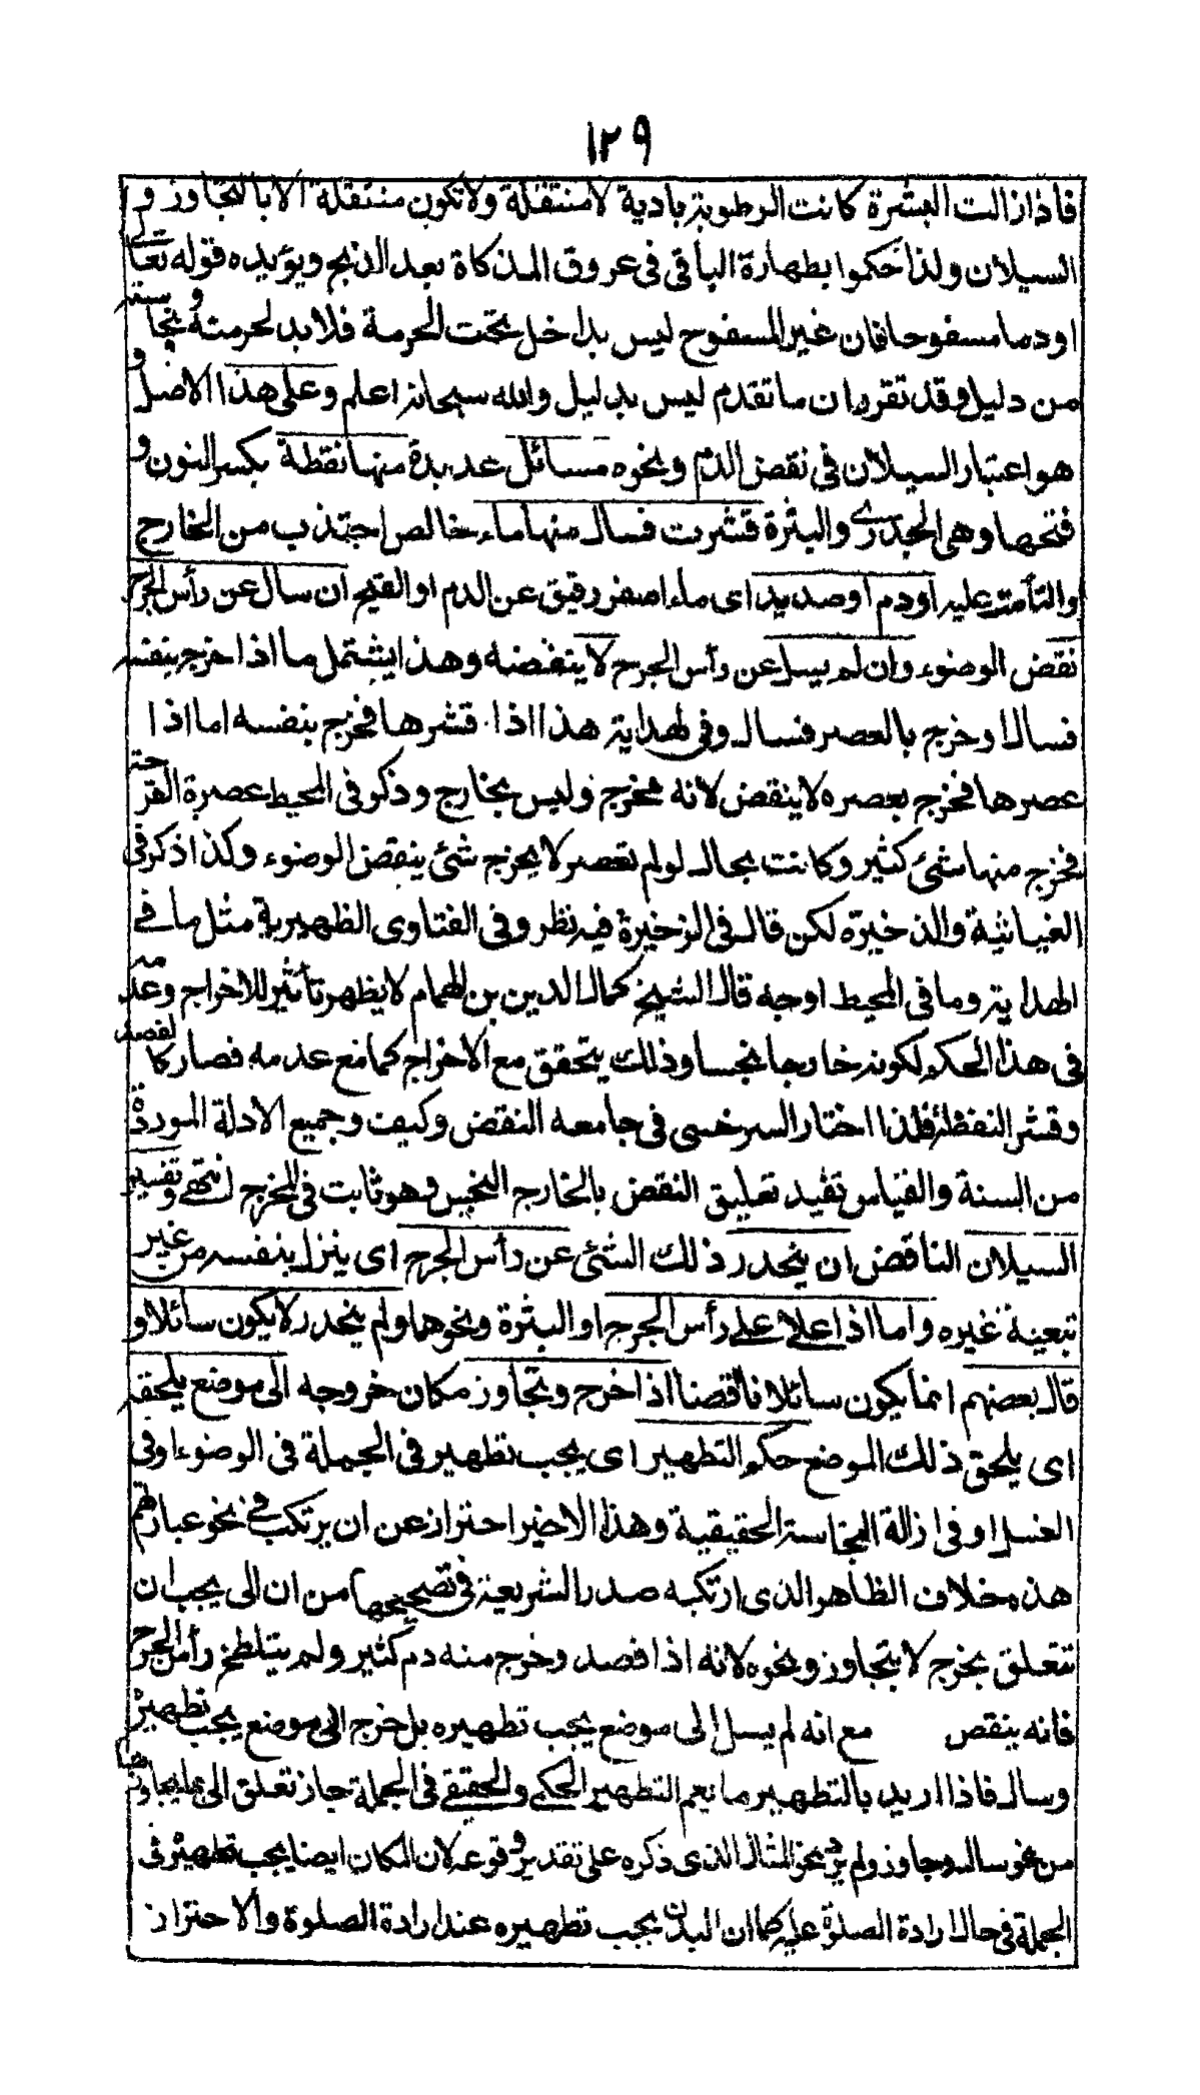 ١٢٩
فاذا زالت البشرة كانت الرطوبة بادية لا منتقلة ولا تكون منتقلة الا بالتجاوز و
السيلان ولذا حكموا بطهارة الباقى فى عروق المذكاة بعد الذبح ويؤيده قوله تعالى
او دما مسفوحا فان غير المسفوح ليس بداخل تحت الحرمة فلا بد لحرمته ونجاسته
من دليل وقد تقرر ان ما تقدم ليس بدليل والله سبحانه اعلم وعلى هذا الاصل و
هو اعتبار السيلان فى نقض الدم ونحوه مسائل عديدة منها نقطة بكسر النون و
فتحها وهى الجدرى والبثرة قشرت فسال منها ماء خالص اجتذب من الخارج
والتأمت عليه او دم او صديد اى ماء اصفر رقيق عن الدم او القيح ان سال عن رأس الجرح
نقض الوضوء وان لم يسل عن رأس الجرح لا ينقضه وهذا يشتمل ما اذا خرج بنفسه
فسال او خرج بالعصر فسال وفى الهداية هذا اذا قشرها فخرج بنفسه اما اذا
عصرها فخرج بعصره لا ينقض لانه مخرج وليس بخارج وذكر فى المحيط عصرة القرحة
فخرج منها شئ كثير وكانت بحال لو لم تعصر لا يخرج شئ ينقض الوضوء وكذا ذكر فى
الغياثية والذخيرة لكن قال فى الزخيرة فيه نظر وفى الفتاوى الظهيرية مثل ما فے
الهداية وما فى المحيط اوجه قال الشيخ كمال الدين بن الهمام لا يظهر تأثير للاخراج وعدمه
فى هذا الحكم لكونه خارجا نجسا وذلك يتحقق مع الاخراج كما مع عدمه فصار كالفصد
وقشر النفطة فلذا اختار السرخسى فى جامعه النقض وكيف وجميع الادلة الموردة
من السنة والقياس تفيد تعليق النقض بالخارج النجس وهو ثابت فى المخرج انتهے وتفسير
السيلان الناقض ان ينحدر ذلك الشئى عن رأس الجرح اى ينزل بنفسه من غير
تبعية غيره واما اذا علا على رأس الجرح او البثرة ونحوهما ولم ينحدر لا يكون سائلا و
قال بعضهم انما يكون سائلا ناقضا اذا خرج وتجاوز مكان خروجه الى موضع يلحقه
اى يلحق ذلك الموضع حكم التطهير اى يجب تطهير فى الجملة فى الوضوء او فى
الغسل او فى ازالة النجاسة الحقيقية وهذا الاخير احتراز عن ان يرتكب فے نحو عباراتهم
هذه خلاف الظاهر الذى ارتكبه صدر الشريعة فى تصحيحها من ان الى يجب ان
تتعلق بخرج لا بتجاوز ونحوه لانه اذا فصد وخرج منه دم كثير ولم يتلطخ رأس الجرح
فانه ينقض مع انه لم يسل الى موضع يجب تطهيره بل خرج الى موضع يجب تطهيره
وسال فاذا اريد بالتطهير ما يعم التطهير الحكمے والحقيقے فى الجملة جاز تعلق الى بما يجاوز
من نحو سال وجاوز ولم يرد نحو المثال الذى ذكره على تقدير وقوعه لان المكان ايضا يجب تطهيره فى
الجملة فى حال ارادة الصلوة عليه كما ان البدن يجب تطهيره عند ارادة الصلوة والاحتراز